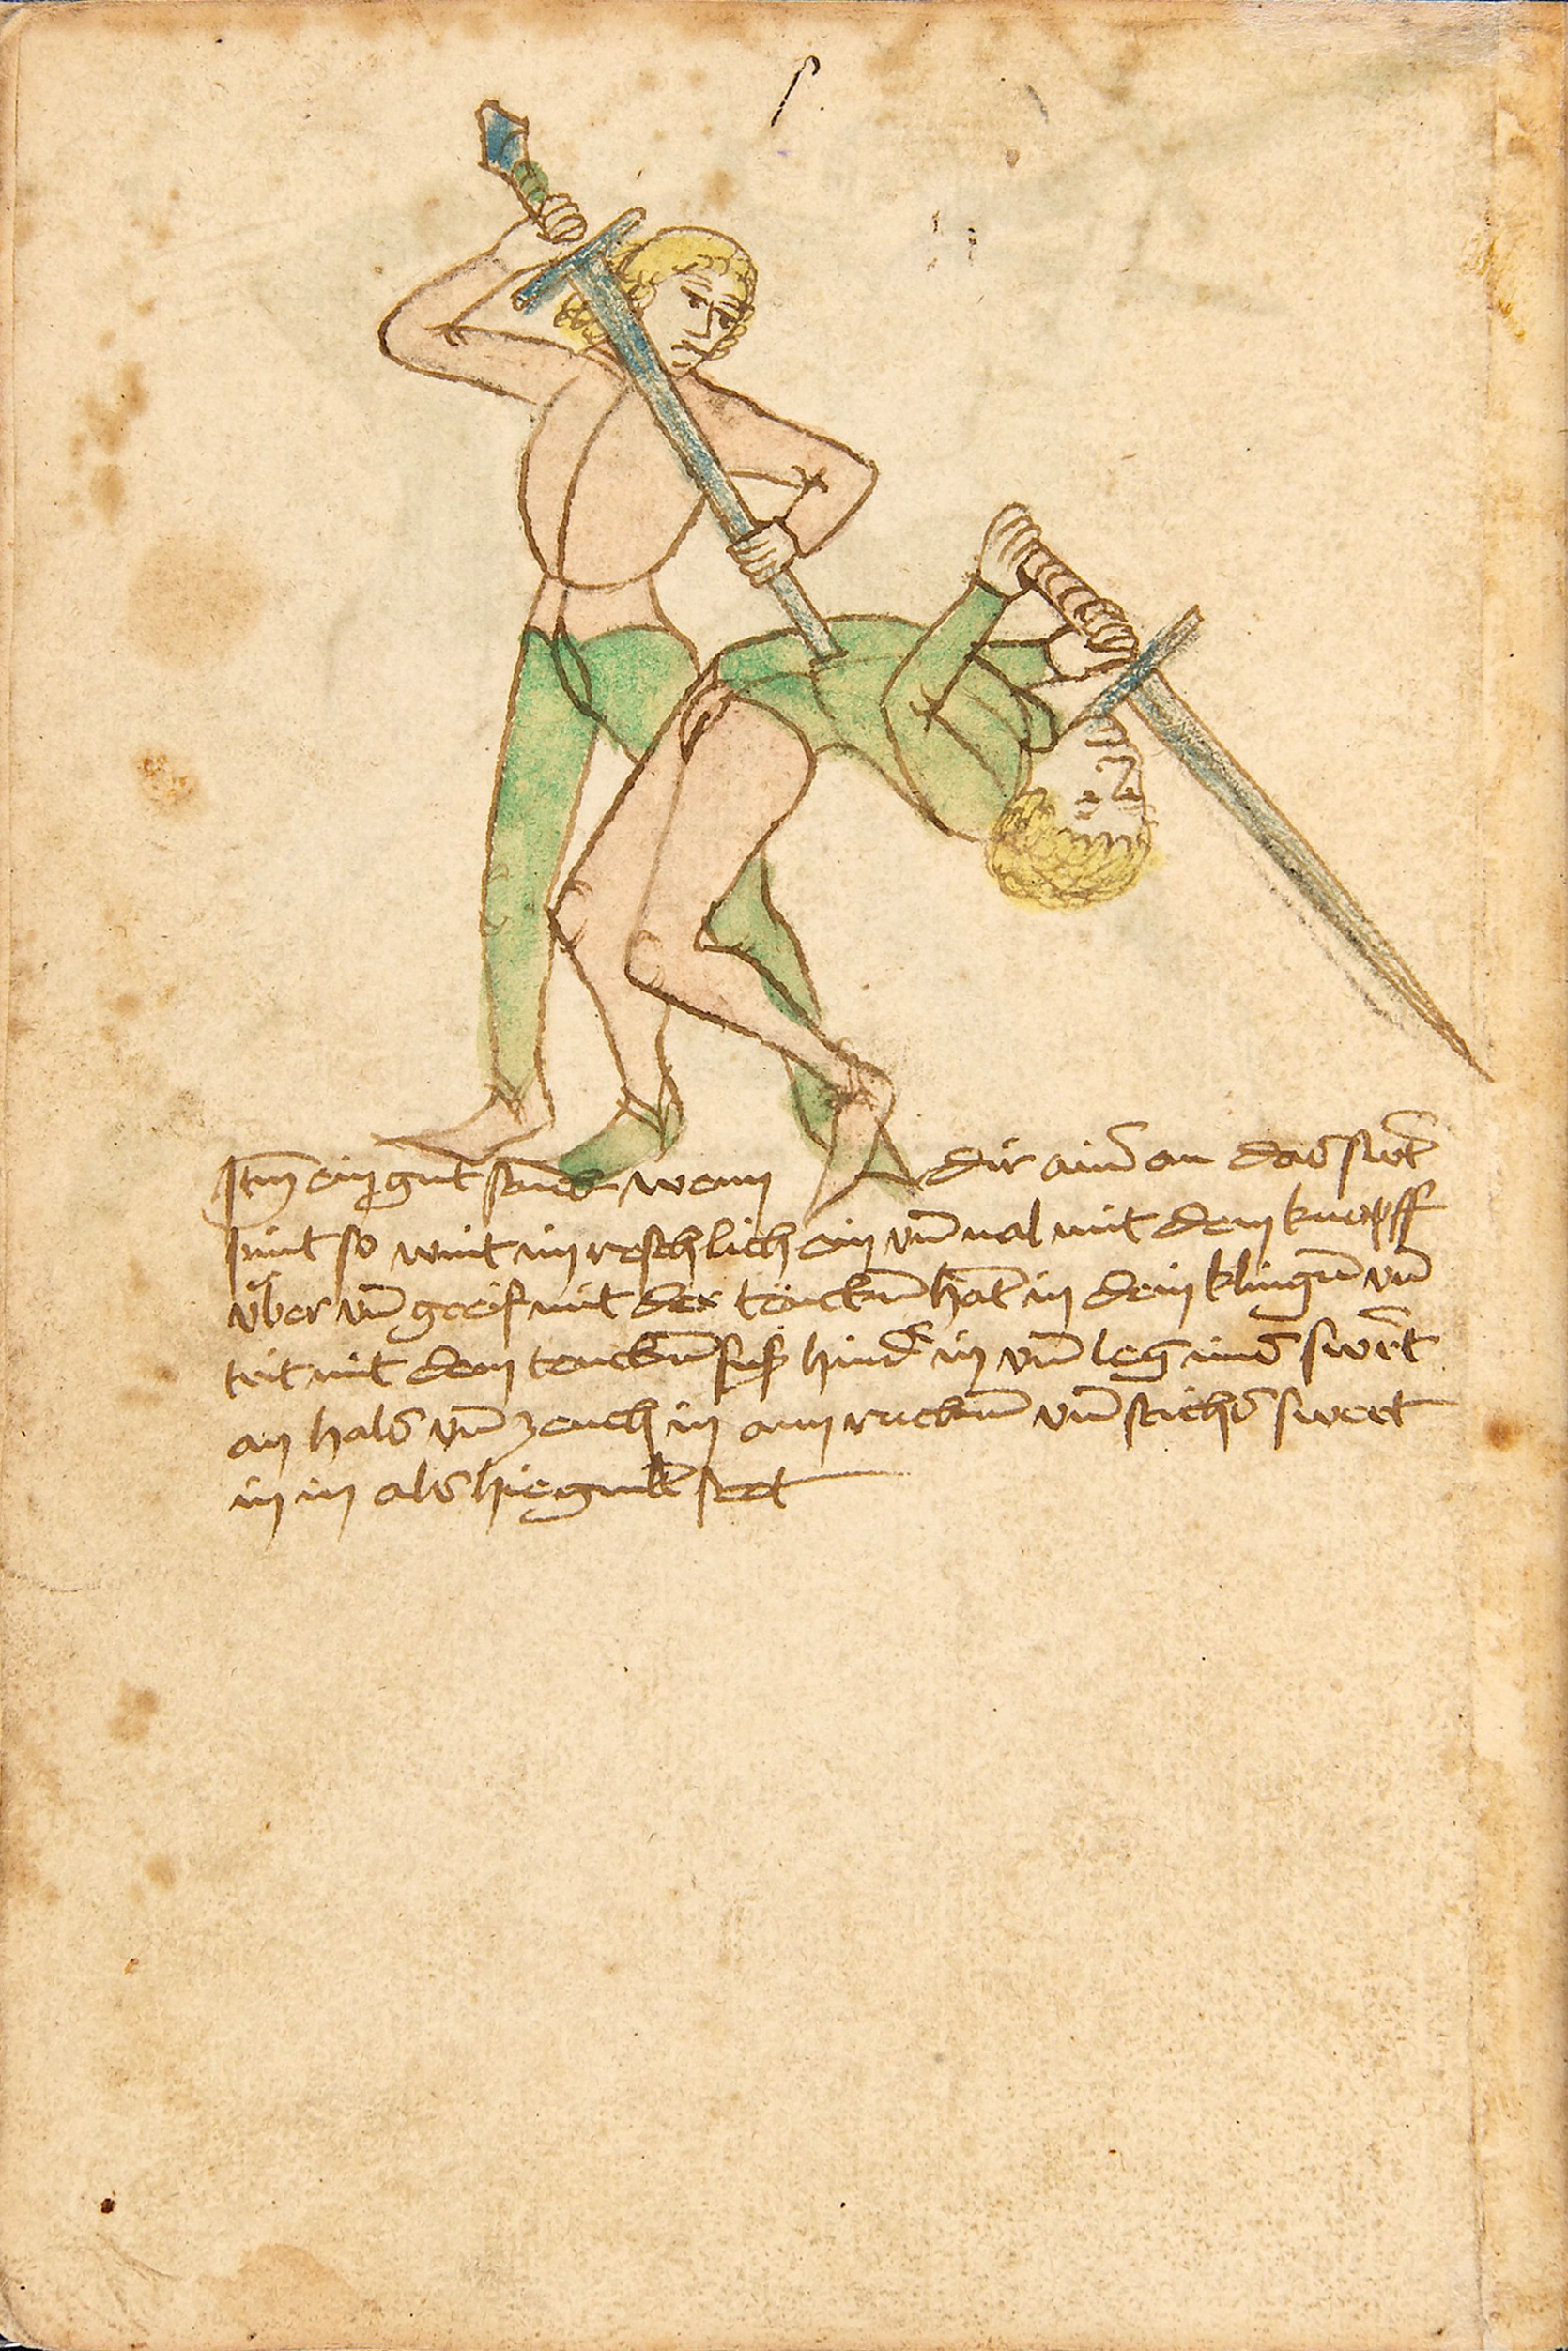 Itm ein gut stuck wenn dir ainr an das swt
pint so wint im reschlich ein vn̄ val mit dem knopff
vber vn̄ greif mit der tencken hāt in dein klingen vn̄
trit mit dem tencken fuß hindr in vn̄ leg ims swert
an hals vn̄ zeuch in am rucken vn̄ stichs swert
in in als hie gmlt stet